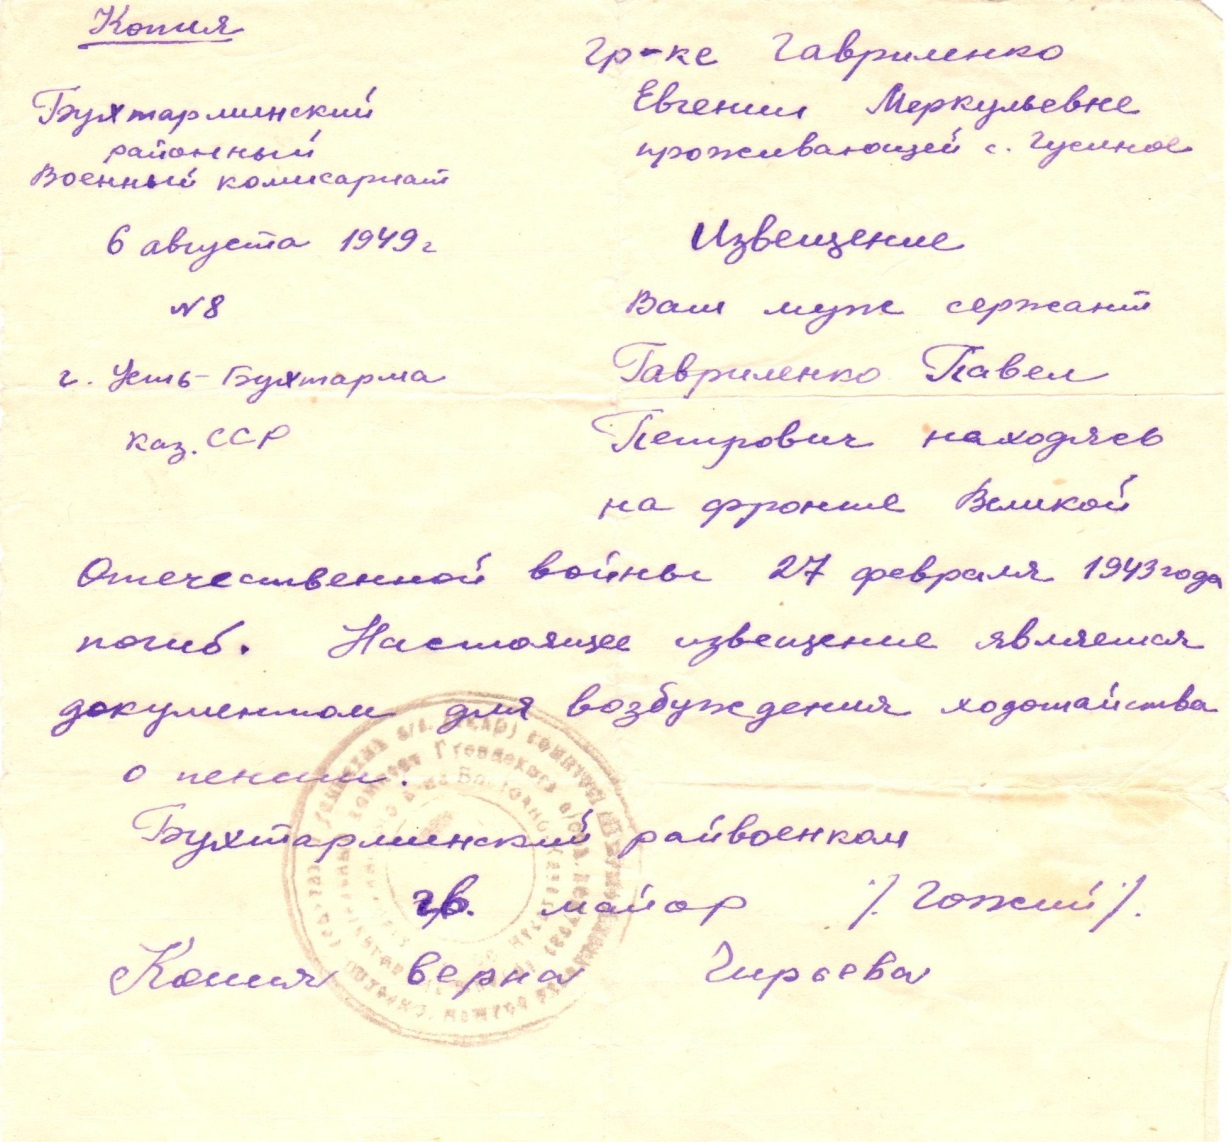 Копия
Бухтарминский
районный
Военный комисариат
6 августа 1949г
N8
г. Усть-Бухтарма
Каз. ССР
гр-ке Гавриленко
Евгении Меркульевне
проживающей с. Гусиное
Извещение
Ваш муж сержант
Гавриленко Павел
Петрович находясь
на фронте Великой
Отечественной войны 27 февраля 1943 года
погиб. Настоящее извещение является
документом для возбуждения ходотайства
о пенсии.
Бухтарминский райвоенком
гв. майор /. Гожий/.
Копия верна